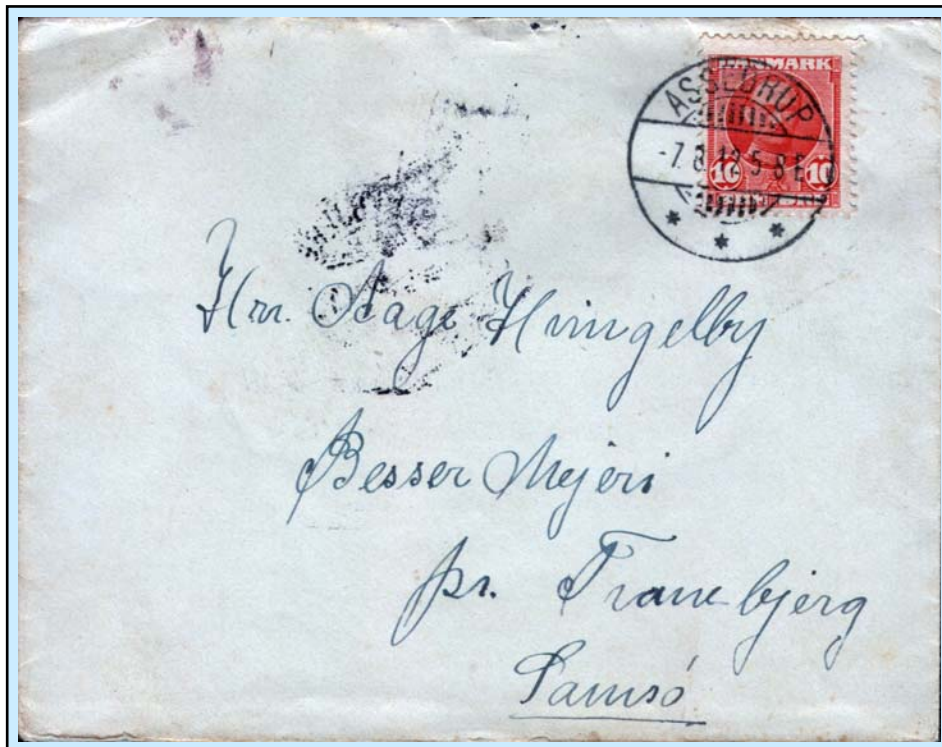 DANMARK
ASSEDRUP
-7.8.12.5-8E
10 10
Hrr. Aage Hringelby
Besser Mejeri
pr. Tranebjerg
Samsö